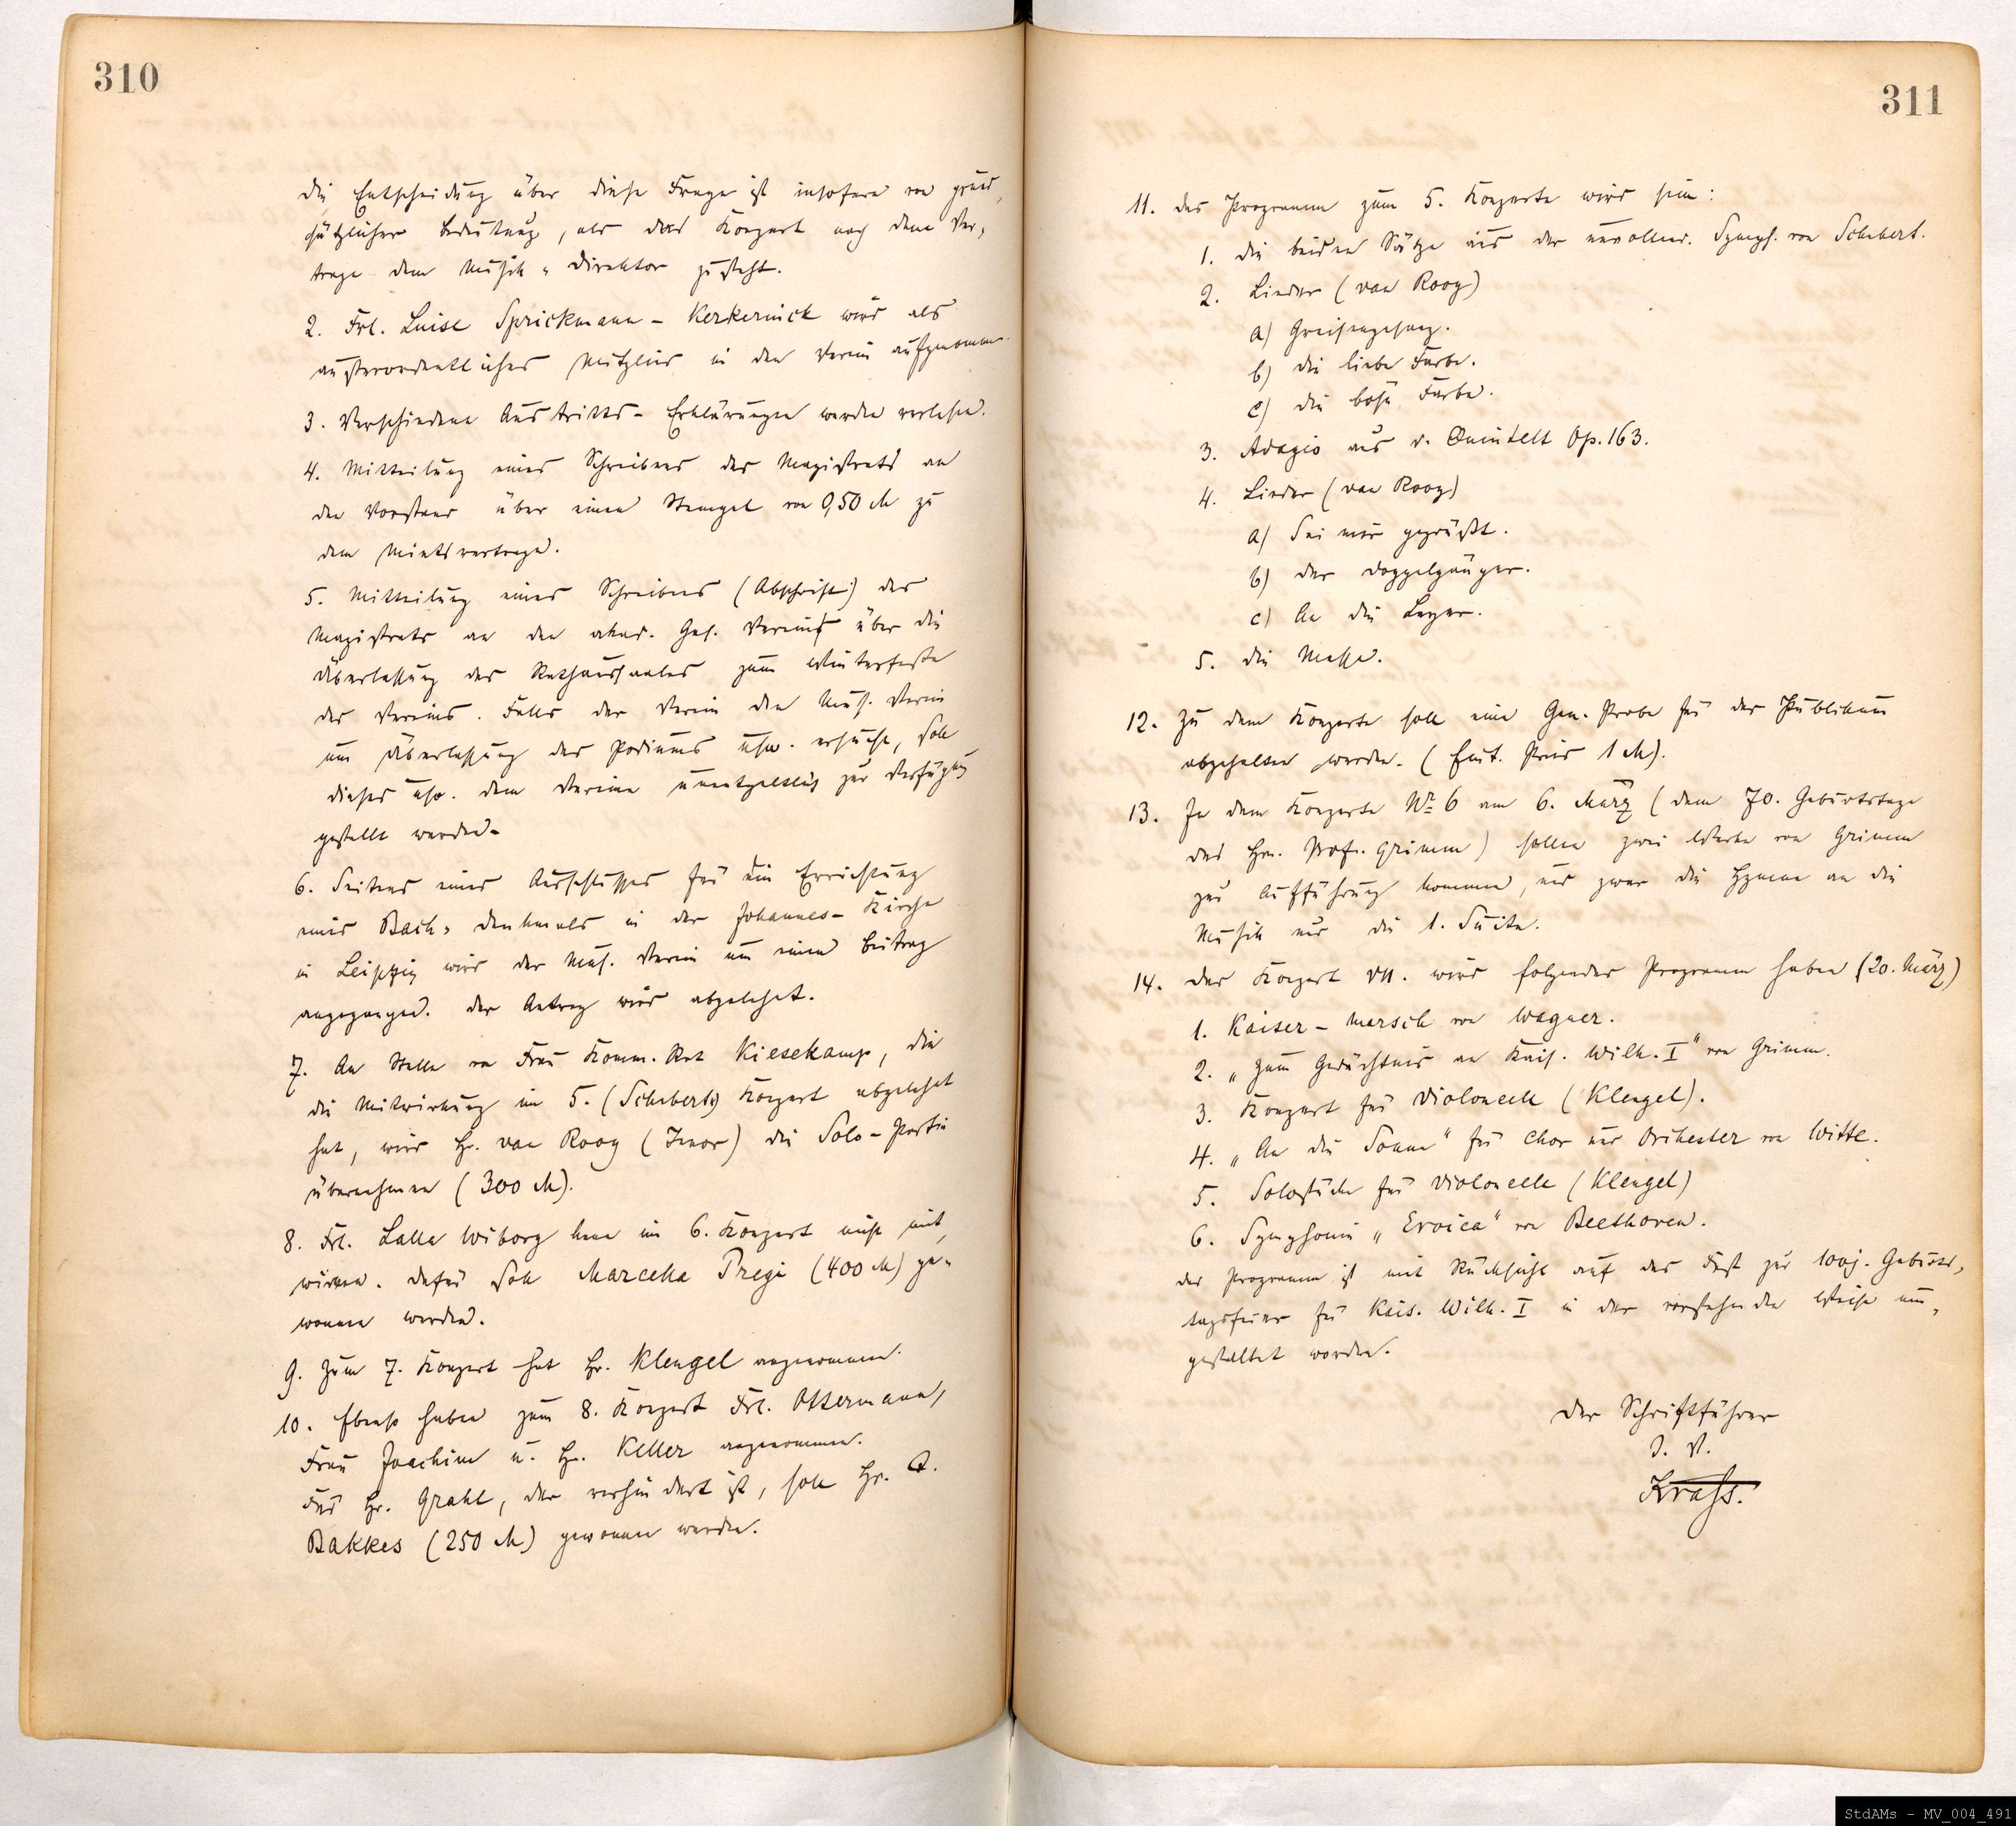 310
Die Entscheidung über diese Frage ist insofern von grund-
sätzlicher Bedeutung, als das Konzert nach dem Ver-
trage dem Musik-Direktor zusteht.
2. Frl. Luise Sprickmann-Kerkerinck wird als
außerordentliches Mitglied in den Verein aufgenommen.
3. Verschiedene Austritts-Erklärungen werden verlesen.
4. Mitteilung eines Schreibens des Magistrats an
den Vorstand über einen Stempel von 0,50 M zu
dem Mietsvertrage.
5. Mitteilung eines Schreibens (Abschrift) des
Magistrats an den akad. Ges. Verein über die
Überlassung des Rathaussaales zum Winterfeste
des Vereins. Falls der Verein den Mus. Verein
um Überlassung des Podiums usw. ersucht, soll
dieses usw. dem Vereine unentgeltlich zur Verfügung
gestellt werden.
6. Seitens eines Ausschusses für die Errichtung
eines Bach-Denkmals in der Johannes-Kirche
in Leipzig wird der Mus. Verein um einen Beitrag
angegangen. Der Antrag wird abgelehnt.
7. An Stelle von Frau Komm. Rat Kiesekamp, die
die Mitwirkung im 5. (Schubert) Konzert abgelehnt
hat, wird Hr. van Rooy (Tenor) die Solo-Partie
übernehmen (300 M).
8. Frl. Lalla Wiborg kann im 6. Konzert nicht mit-
wirken. Dafür soll Marcella Pregi (400 M) ge-
wonnen werden.
9. Zum 7. Konzert hat Hr. Klengel angenommen.
10. Ebenso haben zum 8. Konzert Frl. Ottermann,
Frau Joachim u. Hr. Keller angenommen.
Für Hr. Grahl, der verhindert ist, soll Hr. A.
Bakkes (250 M) gewonnen werden.
311
11. Das Programm zum 5. Konzerte wird sein:
1. Die beiden Sätze aus der unvollend. Symph. von Schubert.
2. Lieder (van Rooy)
a) Greisengesang.
b) Die liebe Farbe.
c) Die böse Farbe.
3. Adagio aus d. Quintett Op. 163.
4. Lieder (van Rooy)
a) Sei mir gegrüßt.
b) Der Doppelgänger.
c) An die Leyer.
5. Die Messe.
12. Zu dem Konzerte soll eine Gen. Probe für das Publikum
abgehalten werden. (Eint. Preis 1 M).
13. In dem Konzerte No 6 am 6. März (dem 70. Geburtstage
des Hrn. Prof. Grimm) sollen zwei Werke von Grimm
zur Aufführung kommen, und zwar die Hymne an die
Musik und die 1. Suite.
14. Das Konzert VII. wird folgendes Programm haben (20. März)
1. Kaiser-Marsch von Wagner.
2. „Zum Gedächtnis an Kais. Wilh. I“ von Grimm.
3. Konzert für Violoncell (Klengel).
4. „An die Sonne“ für Chor und Orchester von Witte.
5. Solostücke für Violoncell (Klengel)
6. Symphonie „Eroica“ von Beethoven.
Das Programm ist mit Rücksicht auf das Fest zur 100j. Geburts-
tagsfeier für Kais. Wilh. I in der vorstehenden Weise um-
gestaltet worden.
Der Schriftführer
I. V.
Krass.
StdAMs - MV_004_491